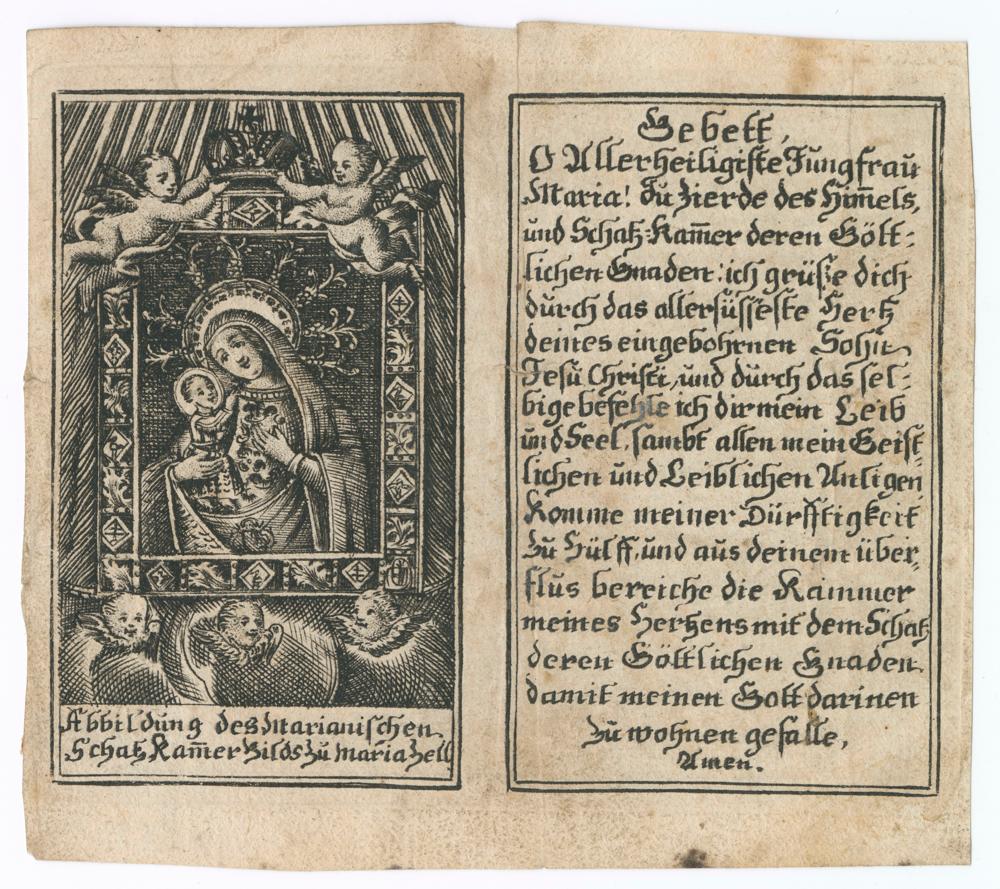 Abbildung des Marianischen
Schatz Kam̄er Bilds Zu Maria Zell
Gebett,
O Allerheiligiste Jungfrau
Maria! Du Zierde des Him̄els,
und Schatz-Kam̄er deren Gött-
lichen Gnaden: ich grüße dich
durch das allersüsseste Hertz
deines eingebohrnen Sohn
Jesu Christi, und durch das sel-
bige befehle ich dir mein Leib
und Seel, sambt allen mein Geist-
lichen und Leiblichen Anligen
Komme meiner Dürfftigkeit
Zu Hülff, und aus deinem über-
flus bereiche die Kammer
meines Hertzens mit dem Schatz
deren Göttlichen Gnaden.
damit meinen Gott darinen
Zu wohnen gefalle,
Amen.